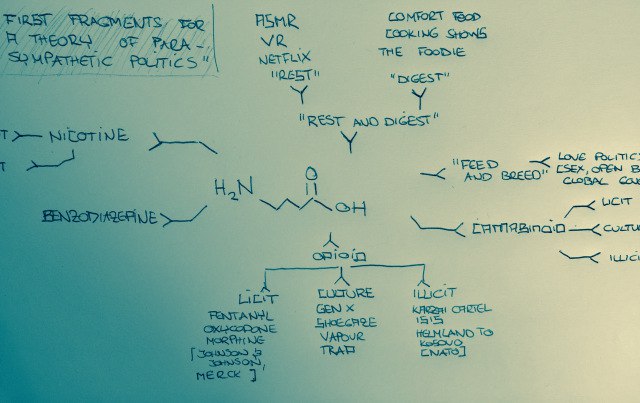 FIRST FRAGMENTS FOR
A THEORY OF PARA-
SYMPATHETIC POLITICS"
ASMR
VR
NETFLIX
"REST"
COMFORT FOOD
COOKING SHOWS
THE FOODIE
"DIGEST"
"REST AND DIGEST"
T
NICOTINE
T
BENZODIAZEPINE
H₂N
O
OH
"FEED
AND BREED"
LOVE POLITICS
[SEX, OPEN B
GLOBAL
CANNABINOID
LICIT
CULTU
ILLICI
OPIOID
LICIT
FENTANYL
OXYCODONE
MORPHINE
[JOHNSON &
JOHNSON,
MERCK]
CULTURE
GEN X
SHOEGAZE
VAPOUR
TRAP
ILLICIT
KARZAI CARTEL
ISIS
HELMLAND TO
KOSOVO
[NATO]